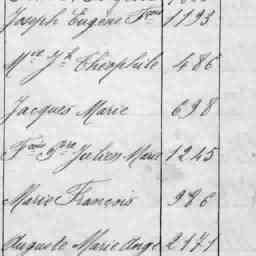 Joseph Eugène Fçois 1193
Mce Jh Théophile 486
Jacques Marie 698
Fçois Pre Julien Marie 1245
Marie François 986
Auguste Marie Ange 2171